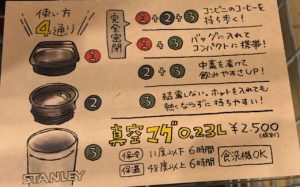 使い方
4通り
完全密閉
①+②+③ コンビニのコーヒーを
持ち歩く!
①+③ バッグに入れて
コンパクトに携帯!
②+③ 中蓋を着けて
飲みやすさUP!
③ 結露しない。ホットを入れても
熱くならずに持ちやすい!
①
②
③
真空マグ0.23L ¥2,500
(税別)
保冷 11度以下6時間
保温 48度以上6時間
食洗機OK
STANLEY